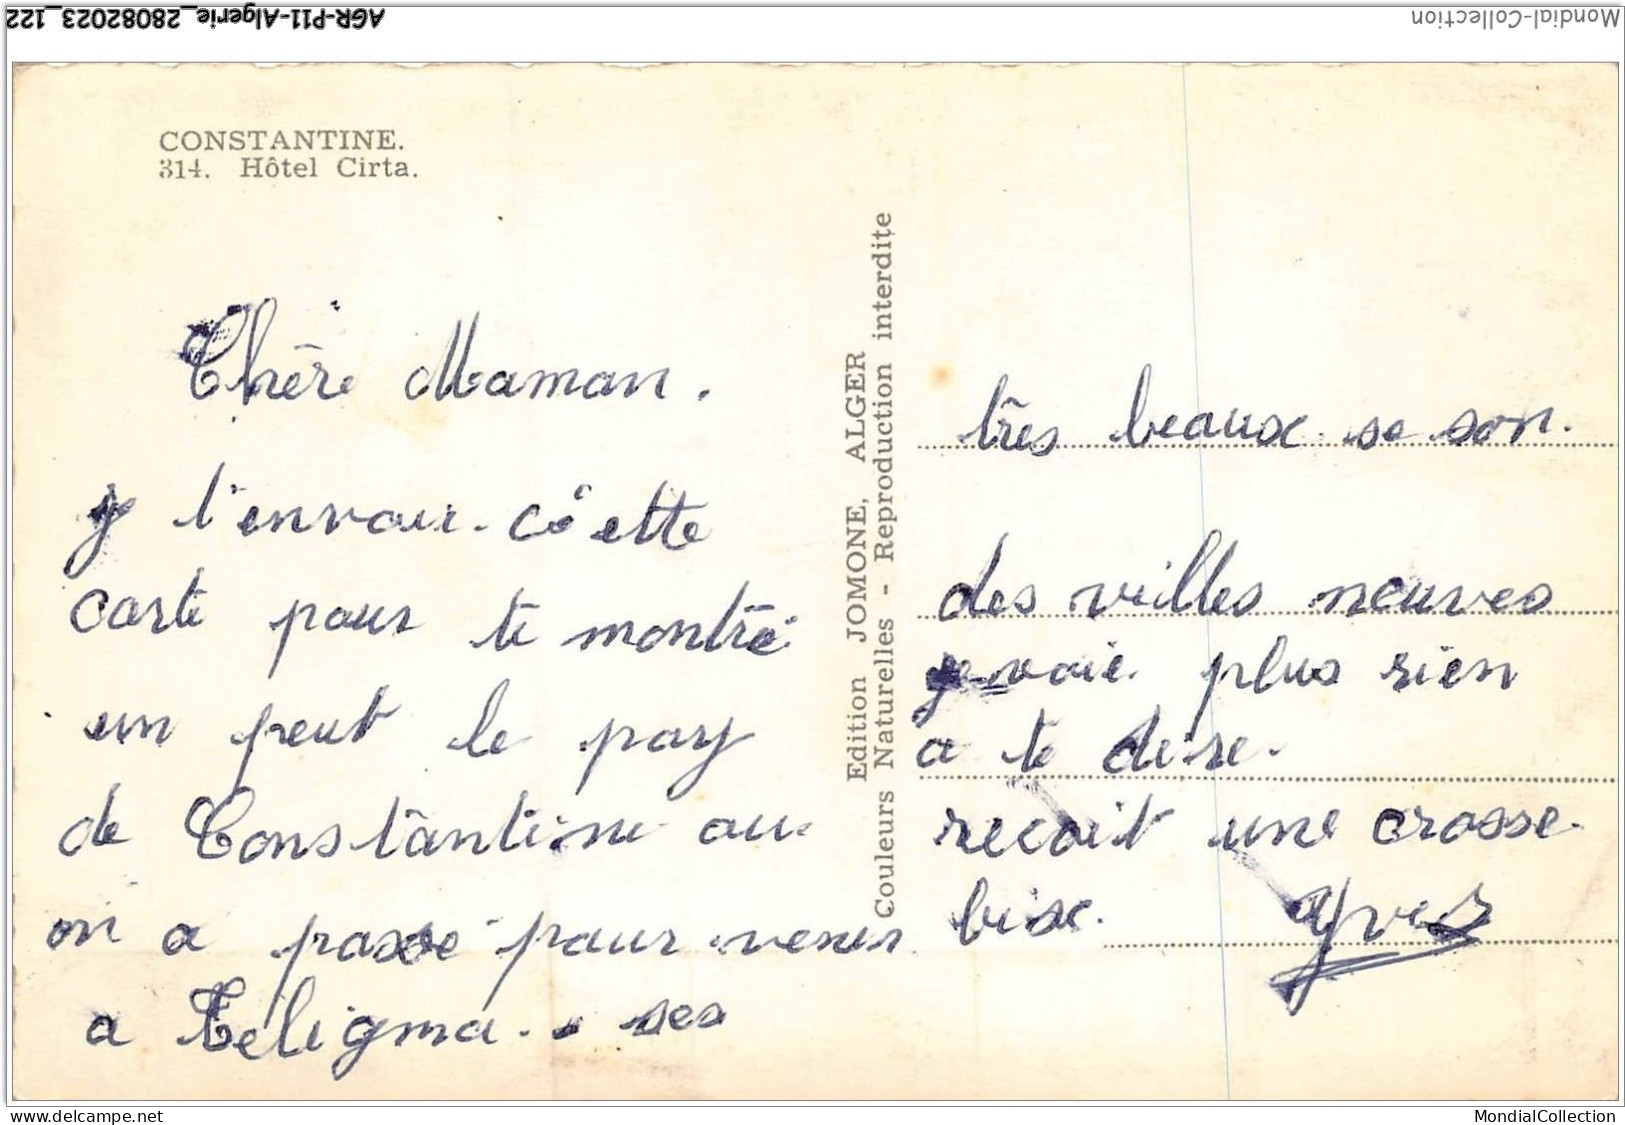 AGR-P11-Algerie_28082023_122
Mondial-Collection
CONSTANTINE.
314. Hôtel Cirta.
Chère Maman.
j t'envoir cette
carte pour te montré
un peut le pay
de Constantine ou
on a passé pour venir
a Téligma. ses
Edition JOMONE, ALGER
Couleurs Naturelles - Reproduction interdite
très beaux se son
des villes neuves
je voie plus rien
a te dire.
recoit une crosse
bise. Yves
delcampe.net
MondialCollection